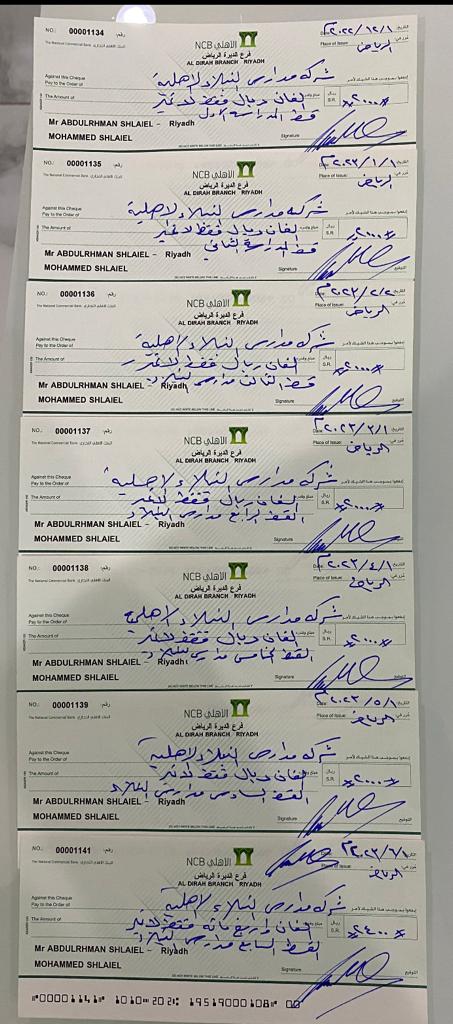 NO.: 00001134 رقم: التاريخ: ٢٠٢٢/١٢/١م
The National Commercial Bank البنك الأهلي التجاري NCB الأهلي Place of Issue: الرياض حرر في:
فرع الديرة الرياض
AL DIRAH BRANCH RIYADH
Against this Cheque
Pay to the Order of شركة مدارس النبلاء الاهلية إدفعوا بموجب هذا الشيك لأمر
The Amount of الفان ريال فقط لاغير مبلغ وقدره ريال S.R. #٢٠٠٠#
قسط المدرسة الأول
Mr ABDULRHMAN SHLAIEL - Riyadh
MOHAMMED SHLAIEL Signature
NO.: 00001135 رقم: التاريخ: ٢٠٢٣/١/١م
The National Commercial Bank البنك الأهلي التجاري NCB الأهلي Place of Issue: الرياض حرر في:
فرع الديرة الرياض
AL DIRAH BRANCH RIYADH
Against this Cheque
Pay to the Order of شركة مدارس النبلاء الاهلية إدفعوا بموجب هذا الشيك لأمر
The Amount of الفان ريال فقط لاغير مبلغ وقدره ريال S.R. #٢٠٠٠#
قسط المدرسة الثاني
Mr ABDULRHMAN SHLAIEL - Riyadh
MOHAMMED SHLAIEL Signature التوقيع
NO.: 00001136 رقم: التاريخ: ٢٠٢٣/٢/٢م
The National Commercial Bank البنك الأهلي التجاري NCB الأهلي Place of Issue: الرياض حرر في:
فرع الديرة الرياض
AL DIRAH BRANCH RIYADH
Against this Cheque
Pay to the Order of شركة مدارس النبلاء الاهلية إدفعوا بموجب هذا الشيك لأمر
The Amount of الفان ريال فقط لاغير مبلغ وقدره ريال S.R. #٢٠٠٠#
قسط الثالث مدارس النبلاء
Mr ABDULRHMAN SHLAIEL - Riyadh
MOHAMMED SHLAIEL Signature التوقيع
NO.: 00001137 رقم: Date: التاريخ: ٢٠٢٣/٣/١م
The National Commercial Bank البنك الأهلي التجاري NCB الأهلي Place of Issue: الرياض حرر في:
فرع الديرة الرياض
AL DIRAH BRANCH RIYADH
Against this Cheque
Pay to the Order of شركة مدارس النبلاء الاهلية إدفعوا بموجب هذا الشيك لأمر
The Amount of الفان ريال فقط لاغير مبلغ وقدره ريال S.R. #٢٠٠٠#
القسط الرابع مدارس النبلاء
Mr ABDULRHMAN SHLAIEL - Riyadh
MOHAMMED SHLAIEL Signature
NO.: 00001138 رقم: Date: التاريخ: ٢٠٢٣/٤/١م
The National Commercial Bank البنك الأهلي التجاري NCB الأهلي Place of Issue: الرياض حرر في:
فرع الديرة الرياض
AL DIRAH BRANCH RIYADH
Against this Cheque
Pay to the Order of شركة مدارس النبلاء الاهلية إدفعوا بموجب هذا الشيك لأمر
The Amount of الفان ريال فقط لاغير مبلغ وقدره ريال S.R. #٢٠٠٠#
القسط الخامس مدارس النبلاء
Mr ABDULRHMAN SHLAIEL - Riyadh
MOHAMMED SHLAIEL Signature التوقيع
NO.: 00001139 رقم: التاريخ: ٢٠٢٣/٥/١م
The National Commercial Bank البنك الأهلي التجاري NCB الأهلي Place of Issue: الرياض حرر في:
فرع الديرة الرياض
AL DIRAH BRANCH RIYADH
Against this Cheque
Pay to the Order of شركة مدارس النبلاء الاهلية إدفعوا بموجب هذا الشيك لأمر
The Amount of الفان ريال فقط لاغير ريال S.R. #٢٠٠٠#
القسط السادس مدارس النبلاء
Mr ABDULRHMAN SHLAIEL - Riyadh
MOHAMMED SHLAIEL Signature التوقيع
NO.: 00001141 رقم: ٢٠٢٣/٦/١
The National Commercial Bank البنك الأهلي التجاري NCB الأهلي الرياض حرر في:
فرع الديرة الرياض
AL DIRAH BRANCH RIYADH
Against this Cheque
Pay to the Order of شركة مدارس النبلاء الاهلية إدفعوا بموجب هذا الشيك لأمر
The Amount of الفان واربع مائة فقط لاغير ريال S.R. #٢٤٠٠#
القسط السابع مدارس النبلاء
Mr ABDULRHMAN SHLAIEL - Riyadh
MOHAMMED SHLAIEL Signature التوقيع
⑈00001141⑈ 1010⑉2021⑆ 19519000108⑈ 00